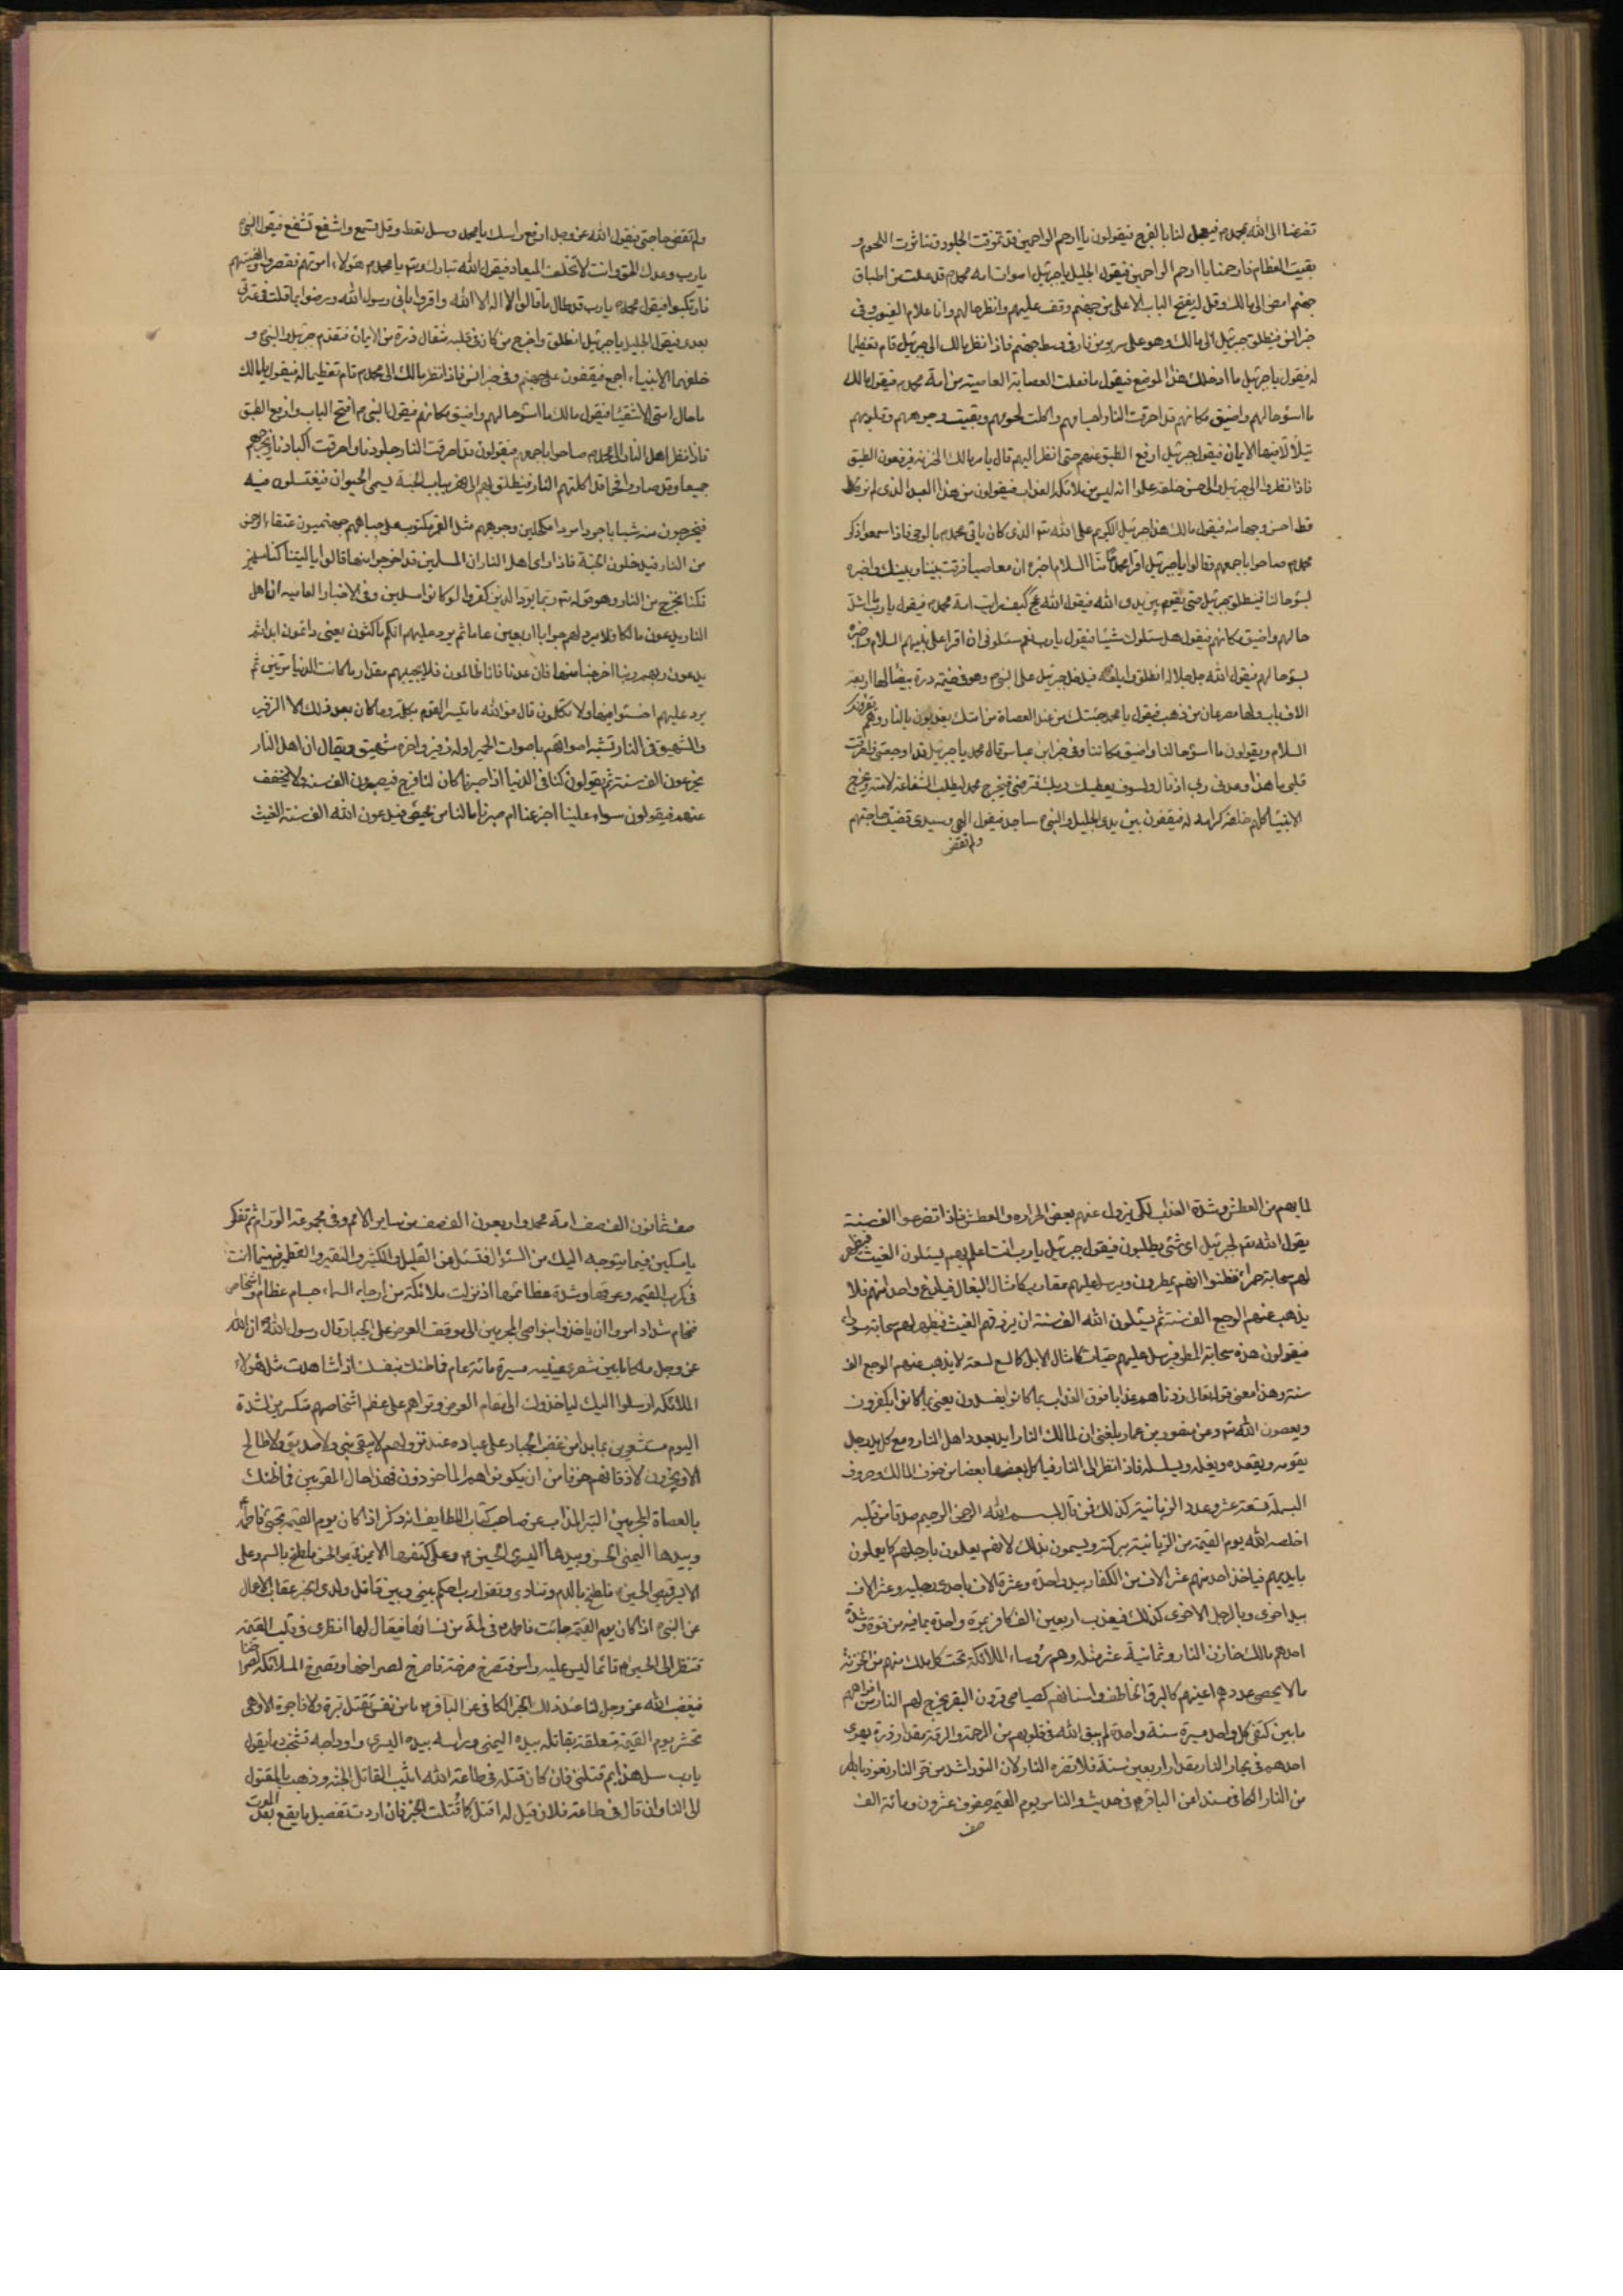 تفرضنا الى الله بمحمد م فيجعل لنا بالفرج فيقولون يا ارحم الراحمين قد تمزقت الجلود وتناثرت اللحوم و
بقيت العظام فارحمنا يا ارحم الراحمين فيقول الجليل يا جبرئيل اصوات امة محمد م قد علت من اطباق
جهنم امض الى مالك وقل له يفتح الباب الاعلى من جهنم وقف عليهم وانظر حالهم وانا علام الغيوب وفى
خبر انس فينطلق جبرئيل الى مالك وهو على سرير من نار فى وسط جهنم فاذا نظر مالك الى جبرئيل قام تعظيما
له فيقول يا جبرئيل ما ادخلك هذا الموضع فيقول ما فعلت العصابة العاصية من امة محمد م فيقول مالك
ما اسوء حالهم واضيق مكانهم قد احرقت النار اجسامهم واكلت لحومهم وبقيت وجوههم وقلوبهم
يتلألأ فيها الايمان فيقول جبرئيل ارفع الطبق عنهم حتى انظر اليهم قال يامر مالك الخزنة فيرفعون الطبق
فاذا نظروا الى جبرئيل والى حسن خلقه علموا انه ليس من ملائكة العذاب فيقولون من هذا العبد الذى لم نر
قط احسن وجها منه فيقول مالك هذا جبرئيل الكريم على الله تعم الذى كان ياتى محمد م بالوحى فاذا سمعوا ذكر
محمد م صاحوا باجمعهم فقالوا يا جبرئيل اقرا محمدا منا السلام اخبره ان معاصينا فرقت بيننا وبينك واخبره
بسوء حالنا فينطلق جبرئيل حتى يقوم بين يدى الله فيقول الله عج كيف رايت امة محمد م فيقول يا رب ما اشد
حالهم واضيق مكانهم فيقول هل سئلوك شيئا فيقول يا رب نعم سئلونى ان اقرا على نبيهم السلام واخبره
بسوء حالهم فيقول الله جل جلاله انطلق وابلغه فيدخل جبرئيل على النبى م وهو فى خيمة درة بيضاء لها اربعة
الاف باب ولها مصرعان من ذهب فيقول يا محمد جئتك من عند العصاة من امتك يعذبون بالنار وهم يقرؤنك
السلام ويقولون ما اسوء حالنا واضيق مكاننا وفى خبر ابن عباس قال محمد يا جبرئيل قد اوجعتنى واحرقت
قلبى ما هذا وعدنى ربى اذ قال ولسوف يعطيك ربك فترضى فيخرج محمد لطلب الشفاعة لامته ويخرج
الانبياء كلهم خلفه كرامة له فيقفون بين يدى الجليل والنبى م ساجد فيقول الهى وسيدى قضيت حاجتهم
ولم تقض
ولم تقض حاجتى فيقول الله عز وجل ارفع راسك يا محمد وسل تعط وقل تسمع واشفع تشفع فيقول النبى م
يا رب وعدك الحق وانت لا تخلف الميعاد فيقول الله تبارك وتعم يا محمد م هؤلاء امرتهم فقصروا ونهيتهم
فارتكبوا فيقول محمد م يا رب قد طال ما قالوا لا اله الا الله واقروا بانى رسول الله ورضوا بما قلت
بعدى فيقول الجليل يا جبرئيل انطلق واخرج من كان فى قلبه مثقال ذرة من الايمان فيقدم جبرئيل والنبى م و
خلفهما الانبياء اجمع فيقفون على جهنم وفى خبر انس فاذا نظر مالك الى محمد م قام تعظيما له فيقول يا مالك
ما حال امتى الاشقياء فيقول مالك ما اسوء حالهم واضيق مكانهم فيقول النبى م افتح الباب وارفع الطبق
فاذا نظر اهل النار الى محمد م صاحوا باجمعهم فيقولون قد احرقت النار جلودنا واحرقت اكبادنا فيخرجهم
جميعا وقد صاروا فحما قد اكلتهم النار فينطلق بهم الى نهر بباب الجنة يسمى الحيوان فيغتسلون فيه
فيخرجون منه شبابا جردا مردا مكحلين وجوههم مثل القمر مكتوب على جباههم جهنميون عتقاء الرحمن
من النار فيدخلون الجنة فاذا راى اهل النار ان المسلمين قد اخرجوا منها قالوا يا ليتنا كنا مسلمين
فكنا نخرج من النار وهو قوله تعم ربما يود الذين كفروا لو كانوا مسلمين وفى الاخبار العاميه ان اهل
النار يدعون مالكا فلا يرد لهم جوابا اربعين عاما ثم يرد عليهم انكم ماكثون يعنى دائمون ابدا ثم
يدعون ربهم ربنا اخرجنا منها فان عدنا فانا ظالمون فلا يجيبهم مقدار ما كانت الدنيا مرتين ثم
يرد عليهم اخسئوا فيها ولا تكلمون قال فو الله ما نبس القوم بكلمة وما كان بعد ذلك الا الزفير
والشهيق فى النار تشبه اصواتهم باصوات الحمير اوله زفير واخره شهيق ويقال ان اهل النار
يجزعون الف سنة ثم يقولون كنا فى الدنيا اذا صبرنا كان لنا فرج فيصبرون الف سنة فلا يخفف
عنهم فيقولون سواء علينا اجزعنا ام صبرنا ما لنا من محيص فيدعون الله الف سنة الغيث
لما بهم من العطش وشدة العذاب لكى يزول عنهم بعض الحرارة والعطش فاذا تضرعوا الف سنة
يقول الله تعم لجبرئيل اى شئى يطلبون فيقول جبرئيل يا رب انت اعلم بهم يسئلون الغيث فيظهر
لهم سحابة حمراء فظنوا انهم يمطرون ويرسل عليهم عقارب كامثال البغال فيلدغ واحد منهم فلا
يذهب عنهم الوجع الف سنة ثم يسئلون الله الف سنة ان يرزقهم الغيث فيظهر لهم سحابة سوداء
فيقولون هذه سحابة المطر فيرسل عليهم حيات كامثال الابل كلما لسع لسعة لا يذهب عنهم الوجع الف
سنة وهذا معنى قوله تعالى زدناهم عذابا فوق العذاب بما كانوا يفسدون يعنى بما كانوا يكفرون
ويعصون الله تعم وعن منصور بن عمار بلغنى ان لمالك النار ايد بعدد اهل النار ومع كل يد رجل
يقومه ويقعده ويغله ويسلسله فاذا نظر الى النار فياكل بعضها بعضا من خوف المالك وحروف
البسملة تسعة عشر وعدد الزبانية كذلك فمن قال بسم الله الرحمن الرحيم صدقا من قلبه
اخلصه الله يوم القيمة من الزبانية ببركته ويسمون بذلك لانهم يعملون بارجلهم كما يعملون
بايديهم فياخذ احد منهم عشر الاف من الكفار بيد واحدة وعشرة الاف باحدى رجليه وعشر الاف
بيد اخرى وبالرجل الاخرى كذلك فيعذب اربعين الف كافر بمرة واحدة بما فيه من قوة وشدة
احدهم مالك خازن النار وثمانية عشر مثله وهم رؤساء الملائكة تحت كل ملك منهم من الخزنة
ما لا يحصى عددهم اعينهم كالبرق الخاطف واسنانهم كصياصى قرون البقر يخرج لهب النار من افواههم
ما بين كتفى كل واحد مسيرة سنة واحدة لم يبق الله فى قلوبهم من الرحمة والرافة مقدار ذرة يهوى
احدهم فى بحار النار مقدار اربعين سنة فلا تضره النار لان النور اشد من حر النار نعوذ بالله
من النار الكافى مسندا عن الباقر م فى حديث والناس يوم القيمة صفوف عشرون ومائة الف
صف
صف ثمانون الف صف امة محمد واربعون الف صف من ساير الامم وفى مجموعة الورام ثم تفكر
يا مسكين فيما يتوجه اليك من السئوال فتسئل عن القليل والكثير والنقير والقطمير فبينما انت
فى كرب القيمة وعرقها وشدة عظائمها اذ نزلت ملائكة من ارجاء السماء جسام عظام واشخاص
ضخام شداد امروا ان ياخذوا بنواصى المجرمين الى موقف العرض على الجبار قال رسول الله ص ان الله
عز وجل ملكا ما بين شفرى عينيه مسيرة مائة عام فما ظنك بنفسك اذا شاهدت مثل هؤلاء
الملائكة ارسلوا اليك لياخذوك الى مقام العرض وتراهم على عظم اشخاصهم منكسرين لشدة
اليوم مستشعرين مما بدا من غضب الجبار على عباده عند نزولهم لا يبقى نبى ولا صديق ولا صالح
الا ويخرون لاذقانهم خوفا من ان يكونوا هم الماخوذون فهذا حال المقربين فما ظنك
بالعصاة المجرمين التبر المذاب عن صاحب كتاب اللطايف انه ذكر اذا كان يوم القيمة تجئ فاطمة
وبيدها اليمنى الحسن وبيدها اليسرى الحسين م وعلى كتفها الايمن قميص الحسن ملطخ بالسم وعلى
الايسر قميص الحسين م ملطخ بالدم وتنادى وتقول رب احكم بينى وبين قاتل ولدى الخبر عقاب الاعمال
عن النبى م اذا كان يوم القيمة جائت فاطمة م فى لمة من نسائها فيقال لها انظرى فى قلب القيمة
فتنظر الى الحسين م قائما ليس عليه راس فتصرخ صرخة فاصرخ لصراخها وتصرخ الملائكة لصراخنا
فيغضب الله عز وجل لنا عند ذلك الخبر الكافى عن الباقر م ما من نفس تقتل برة ولا فاجرة الا وهى
تحشر يوم القيمة متعلقة بقاتله بيده اليمنى وراسه بيده اليسرى واوداجه تشخب دما يقول
يا رب سل هذا بم قتلنى فان كان قتله فى طاعة الله اثيب القاتل الجنة وذهب بالمقتول
الى النار وان قال فى طاعة فلان قيل له اقتله كما قتلك الخبر فان اردت تفصيل ما يقع بعد الموت